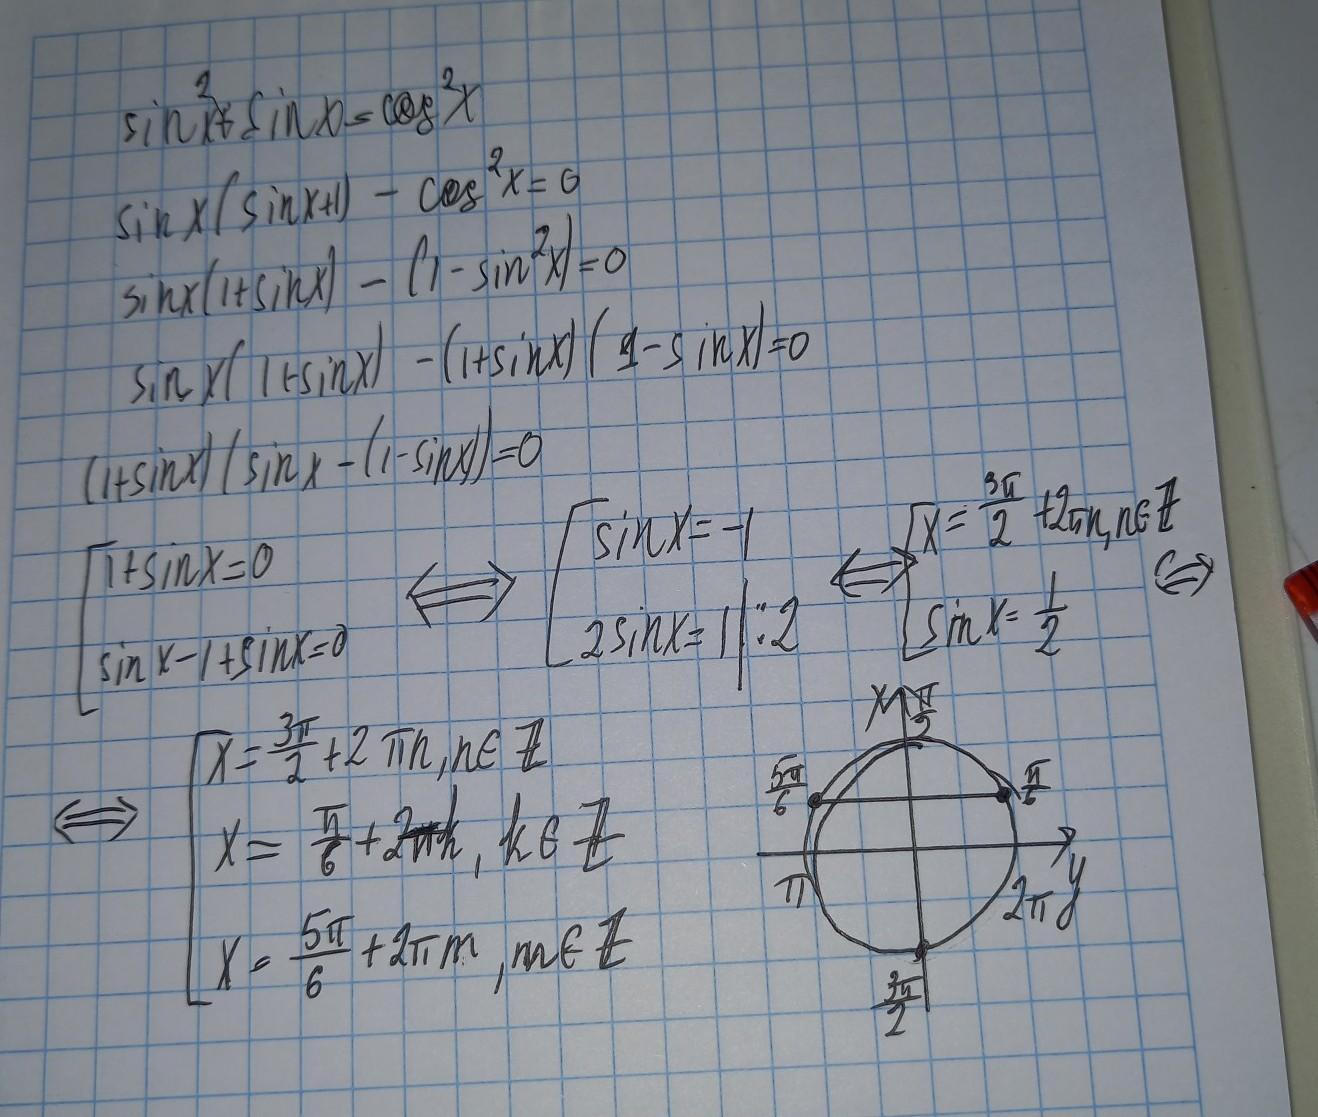 sin²x + sinx = cos²x
sinx(sinx+1) - cos²x = 0
sinx(1+sinx) - (1 - sin²x) = 0
sinx(1+sinx) - (1+sinx)(1-sinx) = 0
(1+sinx)(sinx - (1-sinx)) = 0
[1+sinx=0 ⟺ [sinx=-1 ⟺ [x = 3π/2 + 2πn, n∈Z ⟺
sinx-1+sinx=0 2sinx=1|:2 sinx = 1/2
⟺ [x = 3π/2 + 2πn, n∈Z
x = π/6 + 2πk, k∈Z
x = 5π/6 + 2πm, m∈Z
x π/2
5π/6 π/6
π 2π y
3π/2